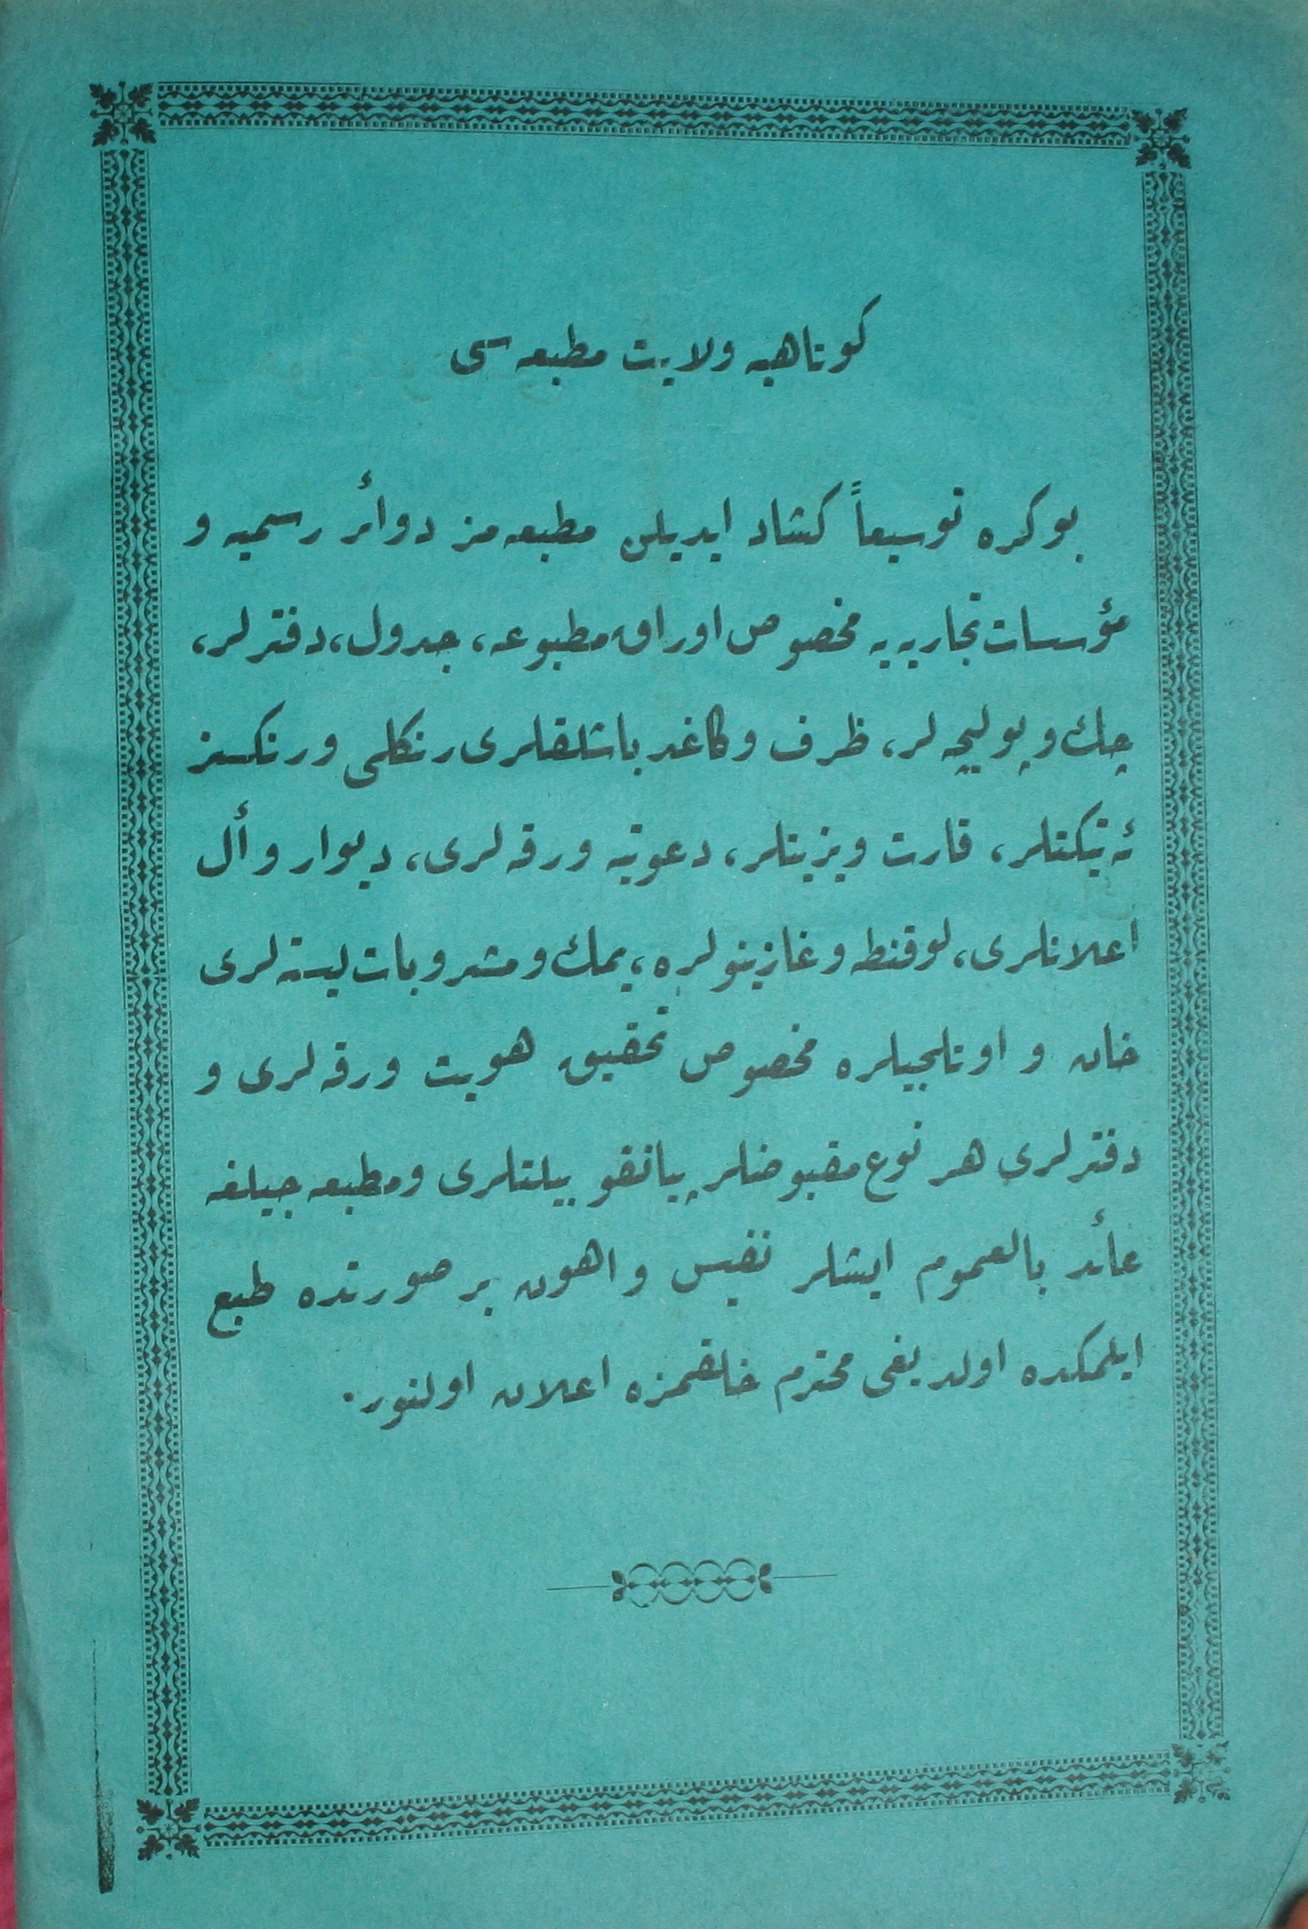 كوتاهيه ولايت مطبعه سى
بوكره توسيعاً كشاد ايديلن مطبعه مز دوائر رسميه و
مؤسسات تجاريه يه مخصوص اوراق مطبوعه، جدول، دفترلر،
چك و پوليچه لر، ظرف و كاغد باشلقلرى رنكلى و رنكسز
ئه تيكتلر، قارت ويزيتلر، دعوتيه ورقه لرى، ديوار و أل
اعلانلرى، لوقنطه و غازينولره، يمك و مشروبات ليسته لرى
خان و اوتلجيلره مخصوص تحقيق هويت ورقه لرى و
دفترلرى هر نوع مقبوضلر پيانقو بيلتلرى و مطبعه جيلغه
عائد بالعموم ايشلر نفيس و اهون بر صورتده طبع
ايلمكده اولديغى محترم خلقمزه اعلان اولنور.